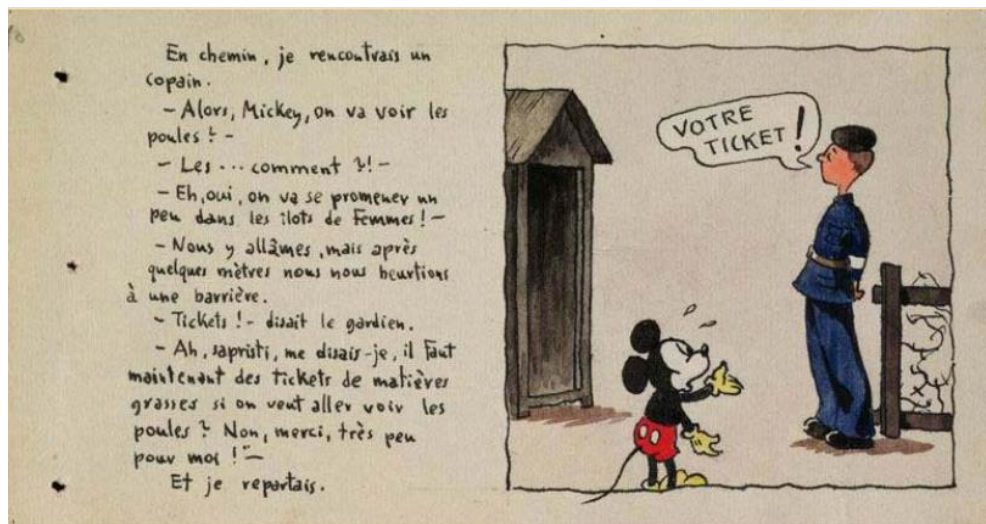 En chemin, je rencontrais un
copain.
- Alors, Mickey, on va voir les
poules ? -
- Les ... comment ?! -
- Eh, oui, on va se promener un
peu dans les îlots de Femmes ! -
- Nous y allâmes, mais après
quelques mètres nous nous heurtions
à une barrière.
- Tickets ! - disait le gardien.
- Ah, sapristi, me disais-je, il faut
maintenant des tickets de matières
grasses si on veut aller voir les
poules ? Non, merci, très peu
pour moi ! -
Et je repartais.
VOTRE
TICKET !